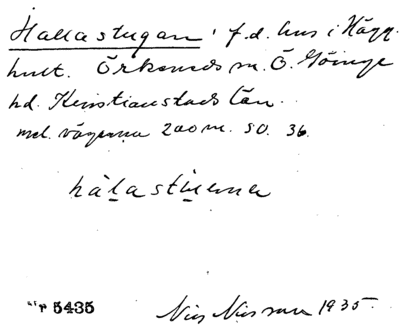 Hallastugan, f.d. hus i Hägg-
hult. Örkeneds sn. Ö. Göinge
hd. Kristianstads län.
mel. vägarna 200 m. SO. 36.
hàlastùena
5435
Nils Nilsson 1935.